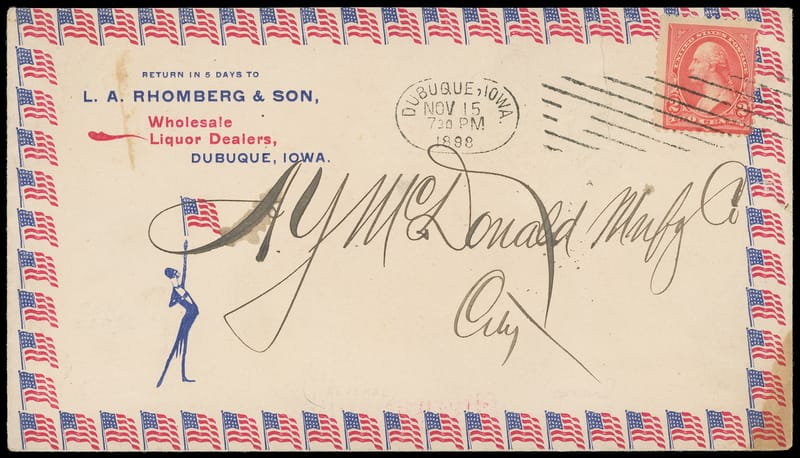 RETURN IN 5 DAYS TO
L. A. RHOMBERG & SON,
Wholesale
Liquor Dealers,
DUBUQUE, IOWA.
DUBUQUE, IOWA.
NOV 15
730 PM
1898
UNITED STATES POSTAGE
TWO CENTS
A Y McDonald Mnfg Co
City